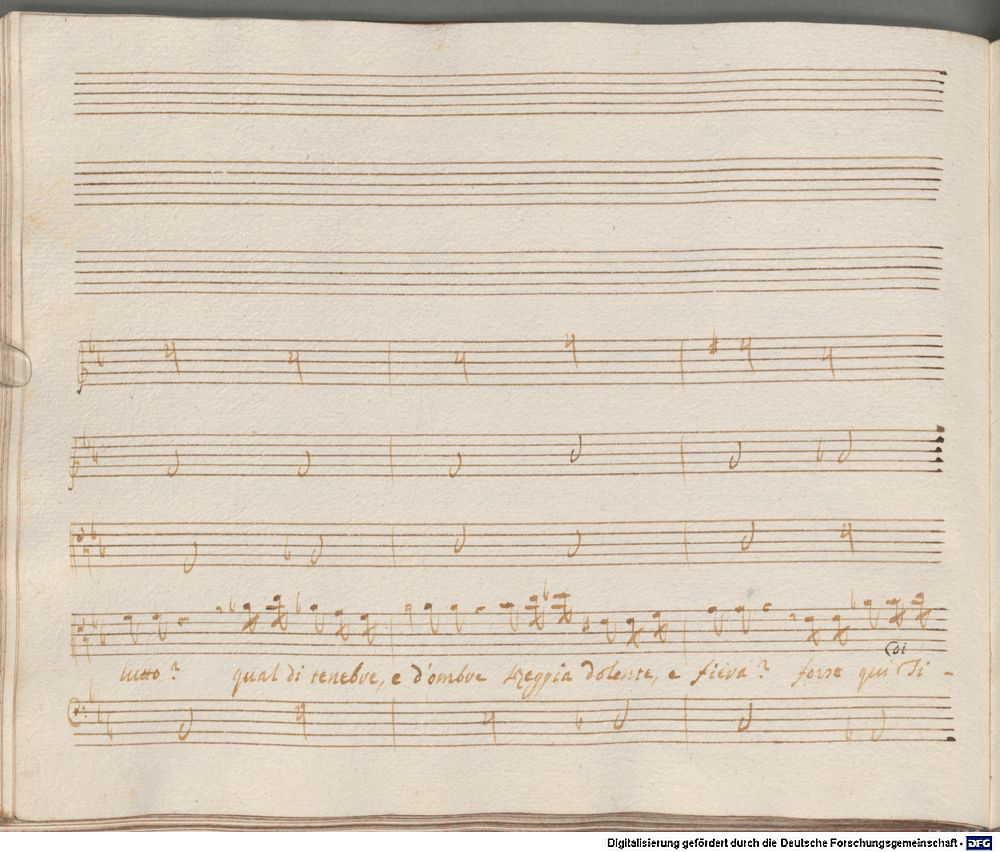 di
lutto? qual di tenebre, e d'ombre Reggia dolente, e fiera? forse qui Si-
Digitalisierung gefördert durch die Deutsche Forschungsgemeinschaft - DFG